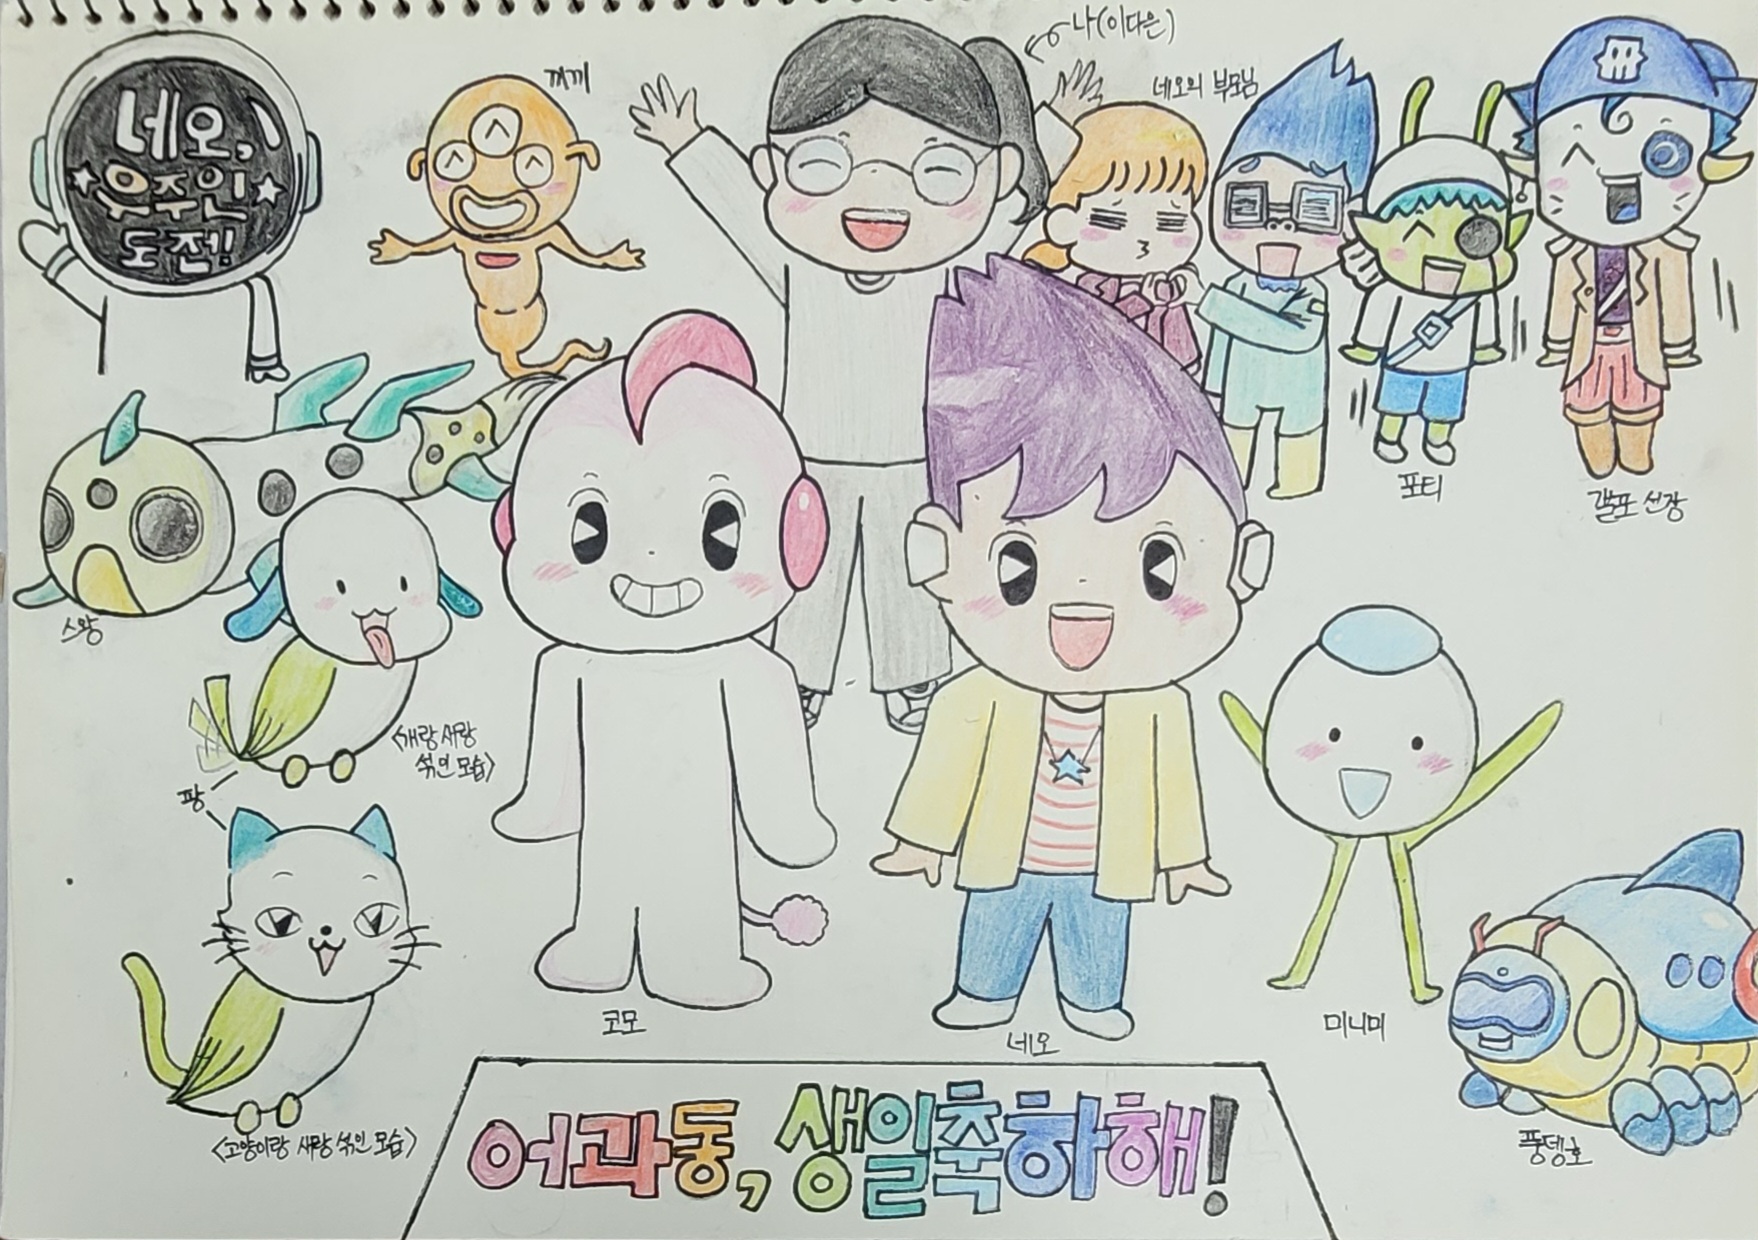 네오,
우주인
도전!
끼끼
나(이다은)
네오의 부모님
포티
갤포 선장
스왕
<개랑 새랑
섞인 모습>
팡
<고양이랑 새랑 섞인 모습>
코모
네오
미니미
풍뎅호
어과동, 생일축하해!